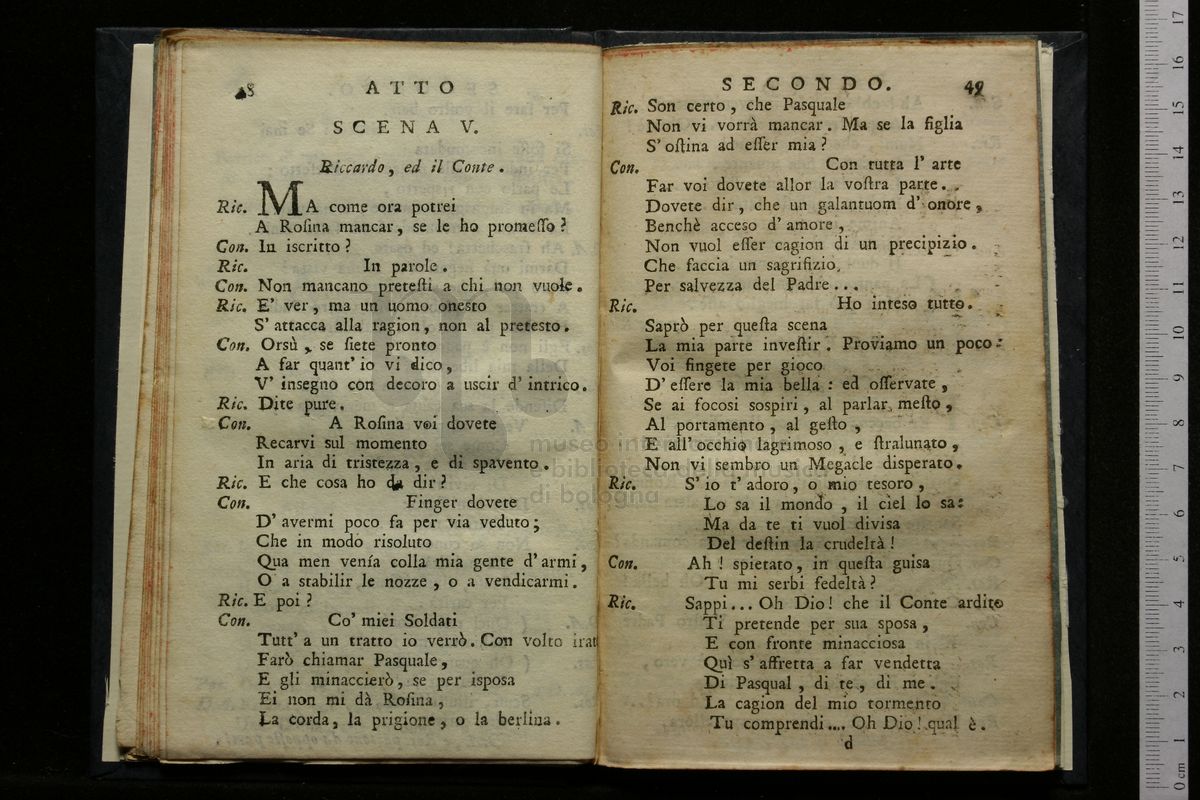 8 ATTO
SCENA V.
Riccardo, ed il Conte.
Ric. MA come ora potrei
A Roſina mancar, se le ho promeſſo?
Con. In iscritto?
Ric. In parole.
Con. Non mancano preteſti a chi non vuole.
Ric. E' ver, ma un uomo onesto
S' attacca alla ragion, non al pretesto.
Con. Orsù, se ſiete pronto
A far quant' io vi dico,
V' insegno con decoro a uscir d' intrico.
Ric. Dite pure.
Con. A Roſina voi dovete
Recarvi sul momento
In aria di tristezza, e di spavento.
Ric. E che cosa ho da dir?
Con. Finger dovete
D' avermi poco fa per via veduto;
Che in modo risoluto
Qua men venía colla mia gente d' armi,
O a stabilir le nozze, o a vendicarmi.
Ric. E poi?
Con. Co' miei Soldati
Tutt' a un tratto io verrò. Con volto irat
Farò chiamar Pasquale,
E gli minaccierò, se per isposa
Ei non mi dà Roſina,
La corda, la prigione, o la berlina.
SECONDO. 49
Ric. Son certo, che Pasquale
Non vi vorrà mancar. Ma se la figlia
S' oſtina ad eſſer mia?
Con. Con tutta l' arte
Far voi dovete allor la voſtra parte..
Dovete dir, che un galantuom d' onore,
Benchè acceso d' amore,
Non vuol eſſer cagion di un precipizio.
Che faccia un sagrifizio,
Per salvezza del Padre...
Ric. Ho inteso tutto.
Saprò per queſta scena
La mia parte inveſtir. Proviamo un poco:
Voi fingete per gioco
D' eſſere la mia bella: ed oſſervate,
Se ai focosi sospiri, al parlar meſto,
Al portamento, al geſto,
E all' occhio lagrimoso, e ſtralunato,
Non vi sembro un Megacle disperato.
Ric. S' io t' adoro, o mio tesoro,
Lo sa il mondo, il ciel lo sa:
Ma da te ti vuol divisa
Del deſtin la crudeltà!
Con. Ah! spietato, in queſta guisa
Tu mi serbi fedeltà?
Ric. Sappi... Oh Dio! che il Conte ardito
Ti pretende per sua sposa,
E con fronte minacciosa
Quì s' affretta a far vendetta
Di Pasqual, di te, di me.
La cagion del mio tormento
Tu comprendi.... Oh Dio! qual è.
d
museo internazionale
e biblioteca della musica
di bologna
0 cm 1 2 3 4 5 6 7 8 9 10 11 12 13 14 15 16 17